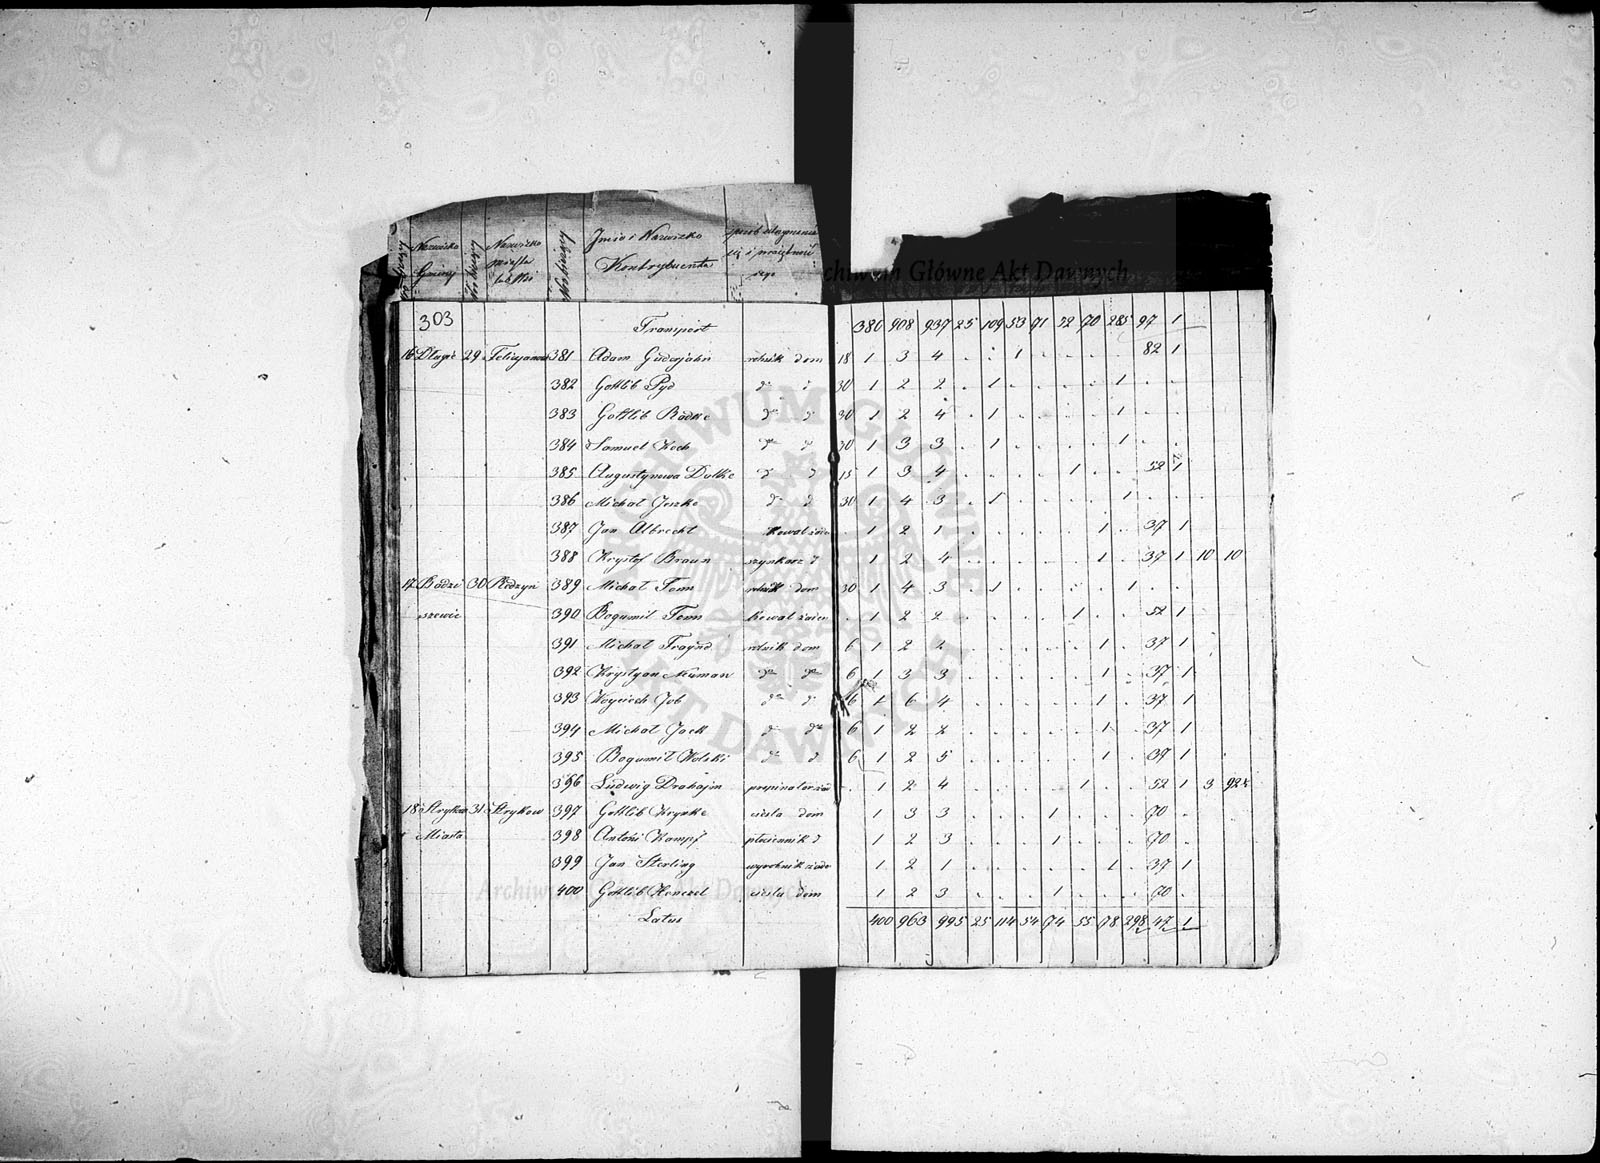 Nazwisko Gminy
Nazwisko
Imie i Nazwisko
Kontrybuenta
303
Transport 380 908 937 25 109 53 71 52 70 285 97 1
16 Długie 29 381 Adam Guderjahn rolnik dom 18 1 3 4 . . 1 . . . . 82 1
382 Gottlib Pyd do d 30 1 2 2 . 1 . . . . 1 . .
383 Gottlib Radke do d 30 1 2 4 . 1 . . . . 1 . .
384 Samuel Koch do d 30 1 3 3 . 1 . . . . 1 . .
385 Augustynowa Dalke d d 15 1 3 4 . . . . 1 . . 52 1
386 Michał Jeske do d 30 1 4 3 . 1 . . . . 1 . .
387 Jan Albrecht Kowal . 1 2 1 . . . . . 1 . 37 1
388 Krystof Braun szynkarz d 1 2 4 . . . . . 1 . 37 1 10 10
17 Bądzi 30 389 Michał Tonn rolnik dom 30 1 4 3 . 1 . . . . 1 . .
szewic 390 Bogumił Tonn Kowal . 1 2 2 . . . . 1 . . 52 1
391 Michał rolnik dom 6 1 2 2 . . . . . 1 . 37 1
392 Krystyan Neuman do do 6 1 3 3 . . . . . 1 . 37 1
393 Woyciech Job do d 6 1 6 4 . . . . . 1 . 37 1
394 Michał Jack d do 6 1 2 2 . . . . . 1 . 37 1
395 Bogumił Wolski d d 6 1 2 5 . . . . . 1 . 37 1
396 Ludwig Drahajm propinator . 1 2 4 . . . . 1 . . 52 1 3 92½
18 Stryków 31 Stryków 397 Gottlib cieśla dom 1 3 3 . . . 1 . . . 70 .
Miasto 398 Antoni Kampf płóciennik d 1 2 3 . . . 1 . . . 70 .
399 Jan Sterling wyrobnik 1 2 1 . . . . . 1 . 37 1
400 Gottlib Henczel cieśla dom 1 2 3 . . . 1 . . . 70 .
Latus 400 963 995 25 114 54 74 55 78 298 47 1
Archiwum Główne Akt Dawnych
ARCHIWUM GŁÓWNE AKT DAWNYCH
Archiwum Główne Akt Dawnych